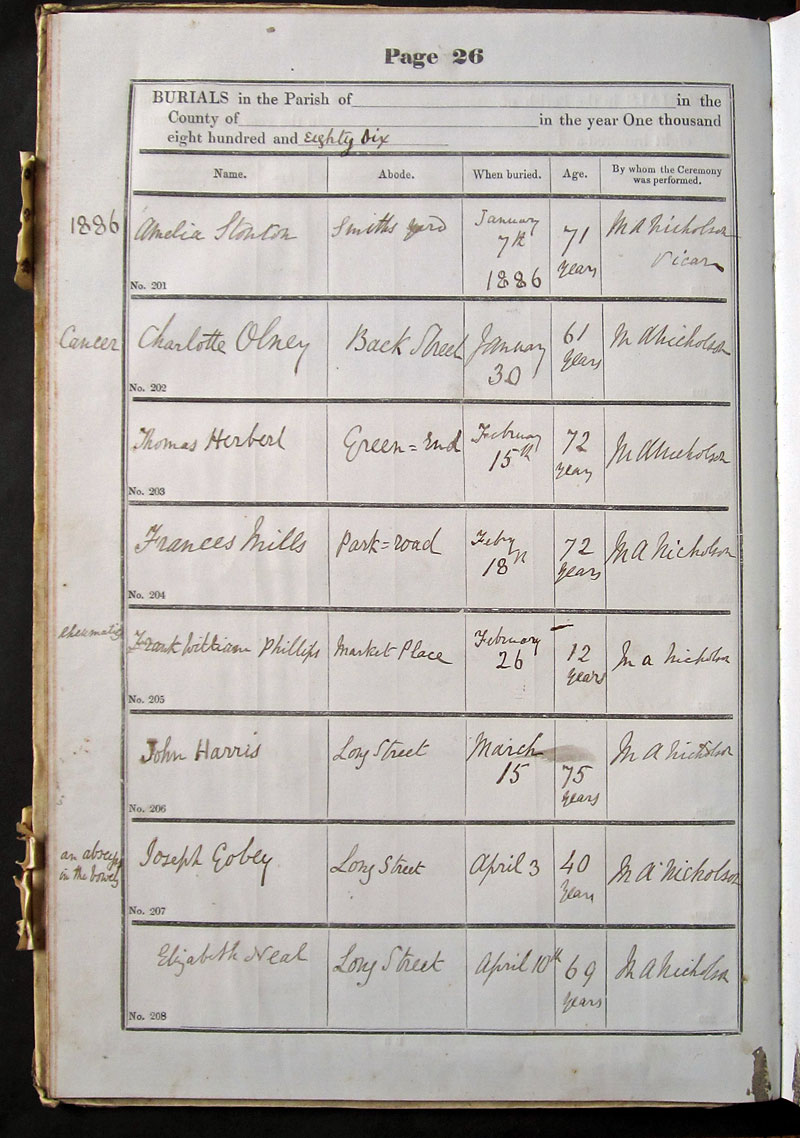 Page 26
BURIALS in the Parish of in the
County of in the year One thousand
eight hundred and Eighty Six
Name. Abode. When buried. Age. By whom the Ceremony was performed.
1886 Amelia Stonton Smiths yard January 7th 1886 71 years M A Nicholson Vicar
No. 201
Cancer Charlotte Olney Back Street January 30 61 years M A Nicholson
No. 202
Thomas Herbert Green=End February 15th 72 years M A Nicholson
No. 203
Frances Mills Park=road Feby 18th 72 years M A Nicholson
No. 204
rheumatic Frank William Phillips Market Place February 26 12 years M A Nicholson
No. 205
John Harris Long Street March 15 75 years M A Nicholson
No. 206
an abscess in the bowels Joseph Gobey Long Street April 3 40 Years M A Nicholson
No. 207
Elizabeth Neal Long Street April 10th 69 years M A Nicholson
No. 208